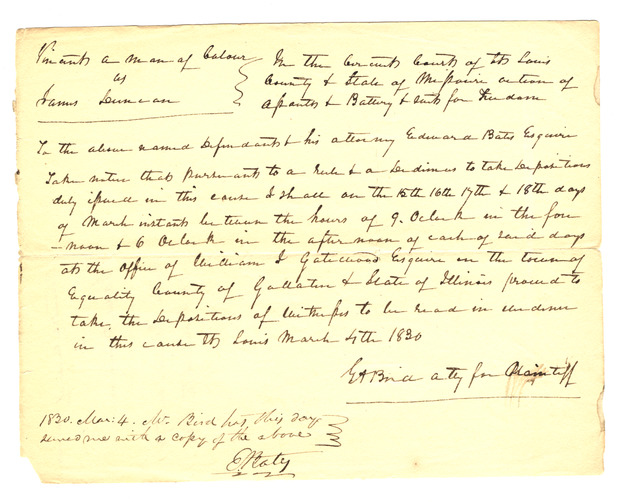 Vincent a man of Colour
vs
James Duncan
In the Circuit Court of St Louis
County & State of Missouri action of
assault & Battery & suit for freedom
To the above named Defendant & his attorney Edward Bates Esquire
Take notice that pursuant to a rule & a Dedimus to take Depositions
duly issued in this cause I shall on the 15th 16th 17th & 18th days
of March instant between the hours of 9. Oclock in the fore
noon & 6 Oclock in the after noon of each of said days
at the Office of William J Gatewood Esquire in the town of
Equality County of Gallatin & State of Illinois proceed to
take the Depositions of Witnesses to be read in evidence
in this cause St Louis March 4th 1830
G A Bird atty for Plaintiff
1830. Mar: 4. Mr. Bird has this day
served me with a copy of the above
E Bates